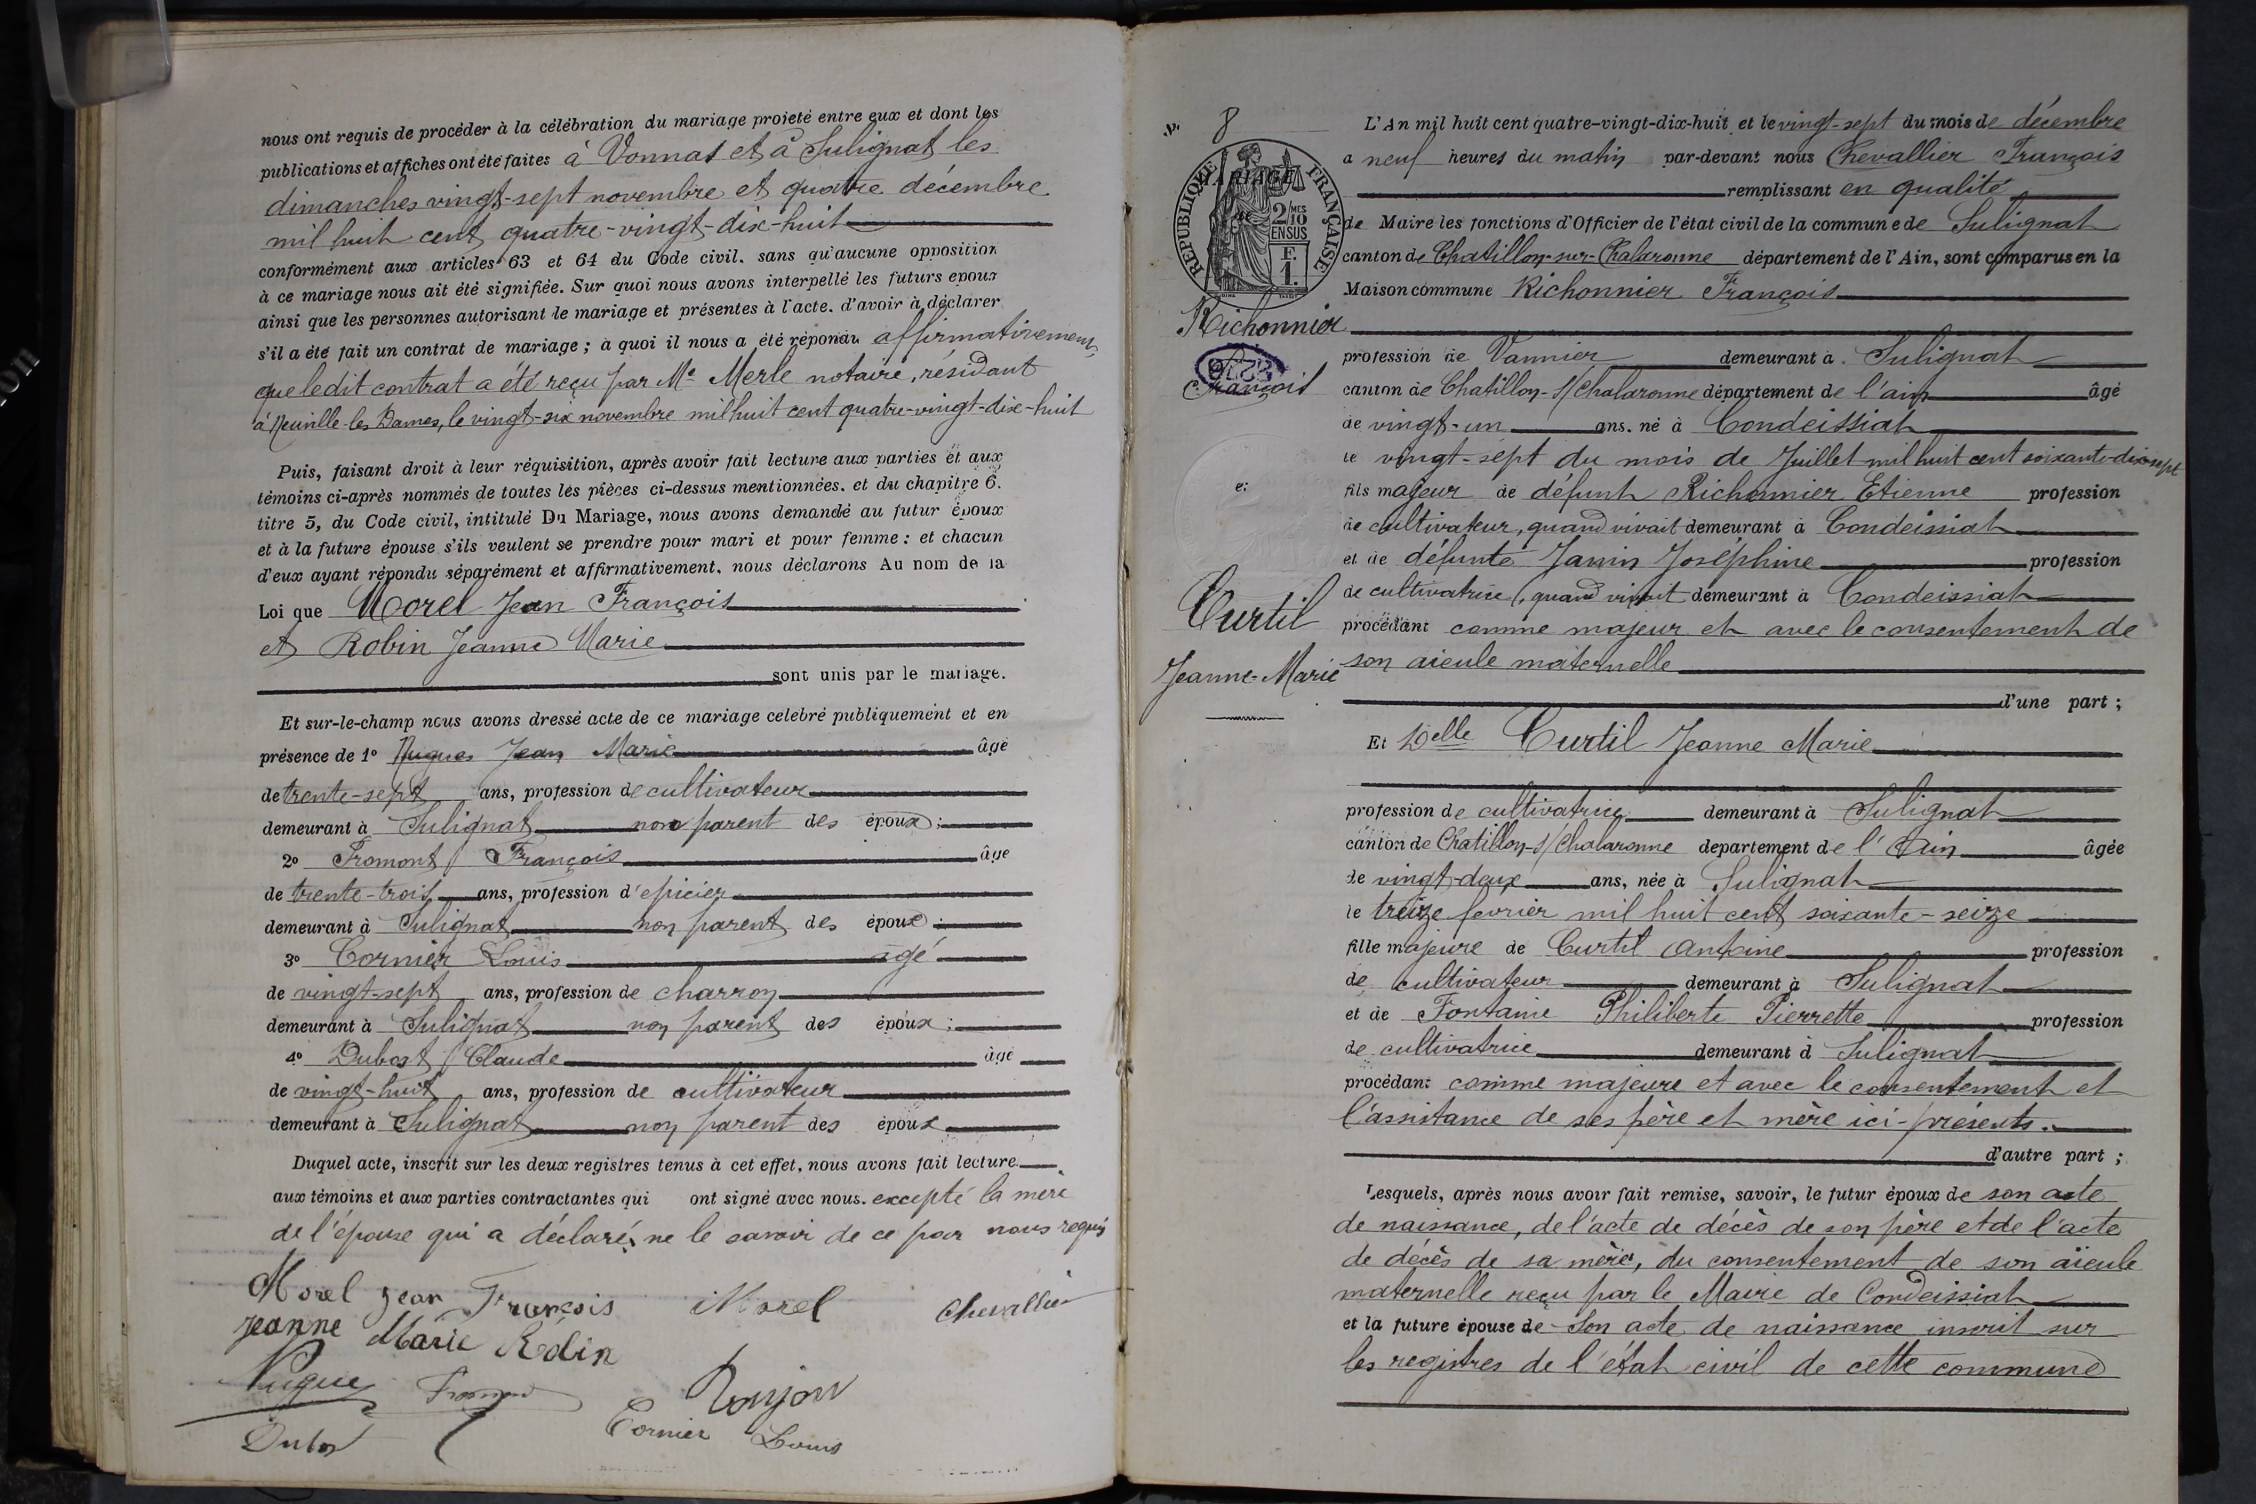 nous ont requis de procéder à la célébration du mariage projeté entre eux et dont les
publications et affiches ont été faites à Vonnas et à Sulignat les
dimanches vingt-sept novembre et quatre décembre
mil huit cent quatre-vingt-dix-huit
conformément aux articles 63 et 64 du Code civil. sans qu'aucune opposition
à ce mariage nous ait été signifiée. Sur quoi nous avons interpellé les futurs époux
ainsi que les personnes autorisant le mariage et présentes à l'acte. d'avoir à déclarer
s'il a été fait un contrat de mariage ; à quoi il nous a été répondu affirmativement,
que ledit contrat a été reçu par Me Merle notaire, résidant
à Neuville-les-Dames, le vingt-six novembre mil huit cent quatre-vingt-dix-huit
Puis, faisant droit à leur réquisition, après avoir fait lecture aux parties et aux
témoins ci-après nommés de toutes les pièces ci-dessus mentionnées. et du chapitre 6.
titre 5, du Code civil, intitulé Du Mariage, nous avons demandé au futur époux
et à la future épouse s'ils veulent se prendre pour mari et pour femme : et chacun
d'eux ayant répondu séparément et affirmativement. nous déclarons Au nom de la
Loi que Morel Jean François
et Robin Jeanne Marie
sont unis par le mariage.
Et sur-le-champ nous avons dressé acte de ce mariage celebré publiquement et en
présence de 1o Nugues Jean Marie âgé
de trente-sept ans, profession de cultivateur
demeurant à Sulignat non parent des époux ;
2o Fromont François âge
de trente-trois ans, profession d'epicier
demeurant à Sulignat non parent des époux ;
3o Cornier Louis agé
de vingt-sept ans, profession de charron
demeurant à Sulignat non parent des époux ;
4o Dubost Claude âge
de vingt-huit ans, profession de cultivateur
demeurant à Sulignat non parent des époux
Duquel acte, inscrit sur les deux registres tenus à cet effet, nous avons fait lecture
aux témoins et aux parties contractantes qui ont signé avec nous. excepté la mère
de l'épouse qui a déclaré ne le savoir de ce par nous requis
Morel Jean François Morel Chevallier
Jeanne Marie Robin
Fromont
Cornier Louis
No 8
MARIAGE
de
RÉPUBLIQUE FRANÇAISE
2/10 MES
EN SUS
F.
1.
Richonnier
François
et
Curtil
Jeanne-Marie
L'An mil huit cent quatre-vingt-dix-huit et le vingt-sept du mois de décembre
a neuf heures du matin par-devant nous Chevallier François
remplissant en qualité
de Maire les fonctions d'Officier de l'état civil de la commune de Sulignat
canton de Chatillon-sur-Chalaronne département de l'Ain, sont comparus en la
Maison commune Richonnier François
profession de Vannier demeurant à Sulignat
canton de Chatillon-s/Chalaronne département de l'ain âgé
de vingt-un ans. né à Condeissiat
le vingt-sept du mois de Juillet mil huit cent soixante-dix-sept
fils majeur de défunt Richonnier Etienne profession
de cultivateur, quand vivait demeurant à Condeissiat
et de défunte Janin Joséphine profession
de cultivatrice, quand vivait demeurant à Condeissiat
procédant comme majeur et avec le consentement de
son aieule maternelle
d'une part ;
Et Delle Curtil Jeanne Marie
profession de cultivatrice demeurant à Sulignat
canton de Chatillon-s/Chalaronne departement de l'Ain âgée
de vingt-deux ans, née à Sulignat
le treize fevrier mil huit cent soixante-seize
fille majeure de Curtil Antoine profession
de cultivateur demeurant à Sulignat
et de Fontaine Philiberte Pierrette profession
de cultivatrice demeurant à Sulignat
procédant comme majeure et avec le consentement et
l'assistance de ses père et mère ici-présents.
d'autre part ;
Lesquels, après nous avoir fait remise, savoir, le futur époux de son acte
de naissance, de l'acte de décès de son père et de l'acte
de décès de sa mère, du consentement de son aïeule
maternelle reçu par le Maire de Condeissiat
et la future épouse de Son acte de naissance inscrit sur
les registres de l'état civil de cette commune